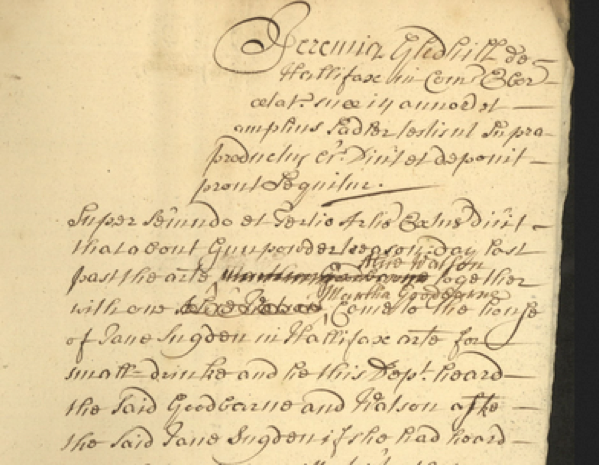 Jeremia Gledhill de
Hallifax in Com Ebor
ætat. suæ 19 annor et
amplius Sadler testis ut Supra
productus &c. Dicit et deponit
prout Sequitur.
Super Secundo et Tertio Artis Extus dicit
that about Gunpowder treason day last
past the arte Alice Watson together
with one Martha Goodbarne, Come to the house
of Jane Sugden in Hallifax arte for
small-drinke and he this Dept. heard
the said Goodbarne and Watson aske
the said Jane Sugden if she had heard